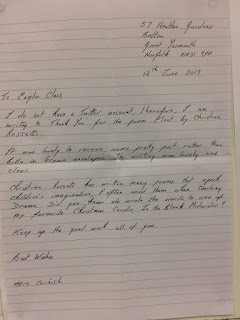 57 Heather Gardens
Belton
Great Yarmouth
Norfolk NR31 9PP
12th June 2017
To Eagles Class
I do not have a Twitter account, therefore, I am
writing to Thank You for the poem Flint by Christina
Rossetti.
It was lovely to receive some pretty post rather than
bills in brown envelopes. The writing was lovely and
clear.
Christina Rossetti has written many poems that spark
children's imagination, I often used them when teaching
Drama. Did you know she wrote the words to one of
my favourite Christmas Carols, In the Bleak Midwinter?
Keep up the good work all of you.
Best Wishes
Mrs Cornish